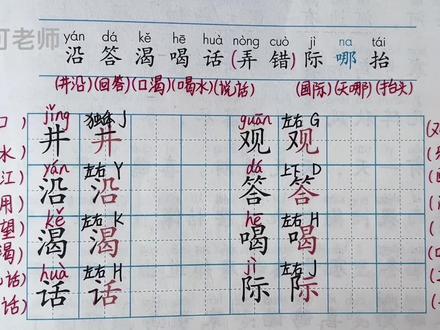 可老师
yán dá kě hē huà nòng cuò jì na tái
沿 答 渴 喝 话 (弄 错) 际 哪 抬
(井沿)(回答)(口渴)(喝水)(说话) (国际)(天哪)(抬头)
口 jǐng 独体 J guān 左右 G
水 井 井 观 观
江 yán 左右 Y dá 上下 D
用 沿 沿 答 答
望 kě 左右 K hē 左右 H
渴 渴 渴 喝 喝
话) huà 左右 H jì 左右 J
话) 话 话 际 际